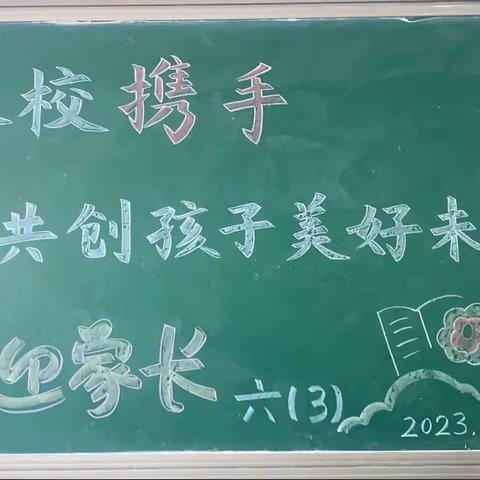 校携手
共创孩子美好未
迎家长
六(3)
2023.